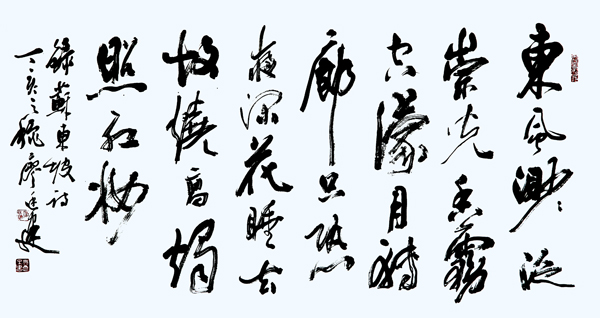 東風渺〻泛
崇光香霧
空濛月轉
廊只恐
夜深花睡去
故燒高燭
照紅妝
錄蘇東坡詩
丁亥之秋廖